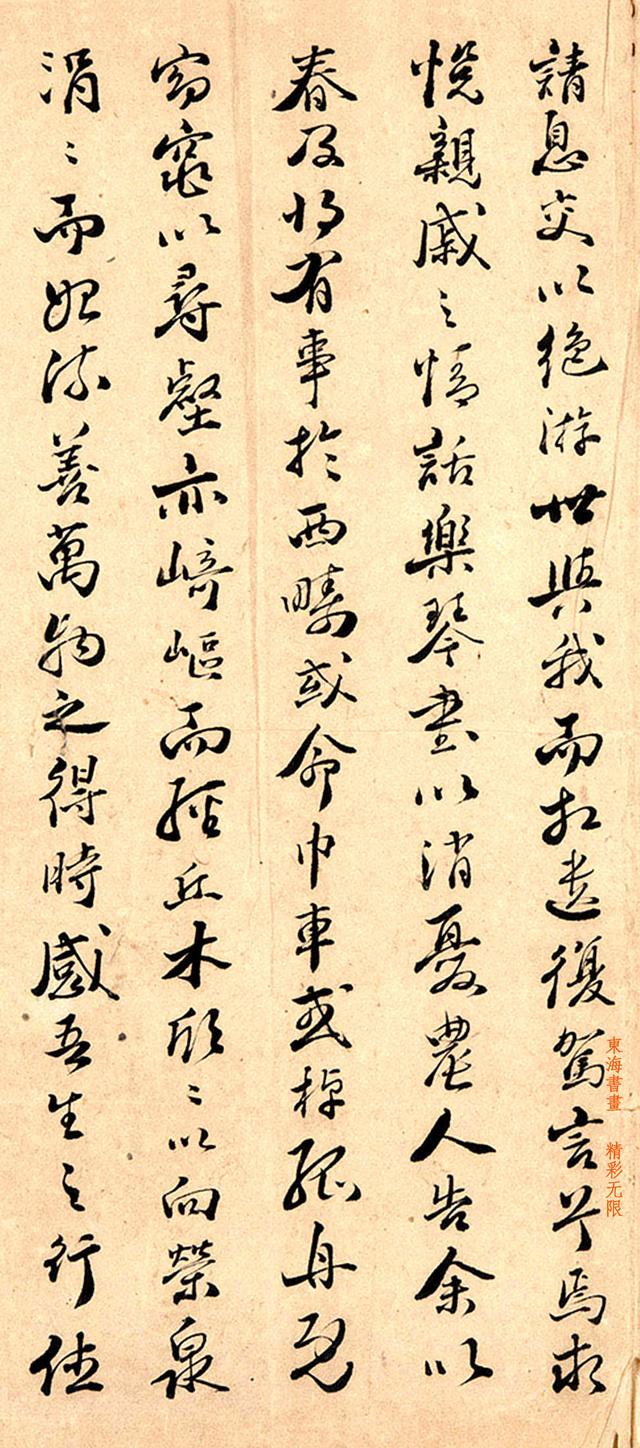 請息交以絶游世與我而相遺復駕言兮焉求
悅親戚之情話樂琴書以消憂農人告余以
春及將有事於西疇或命巾車或棹孤舟既
窈窕以尋壑亦崎嶇而經丘木欣〻以向榮泉
涓〻而始流善萬物之得時感吾生之行休
東海書畫 精彩无限